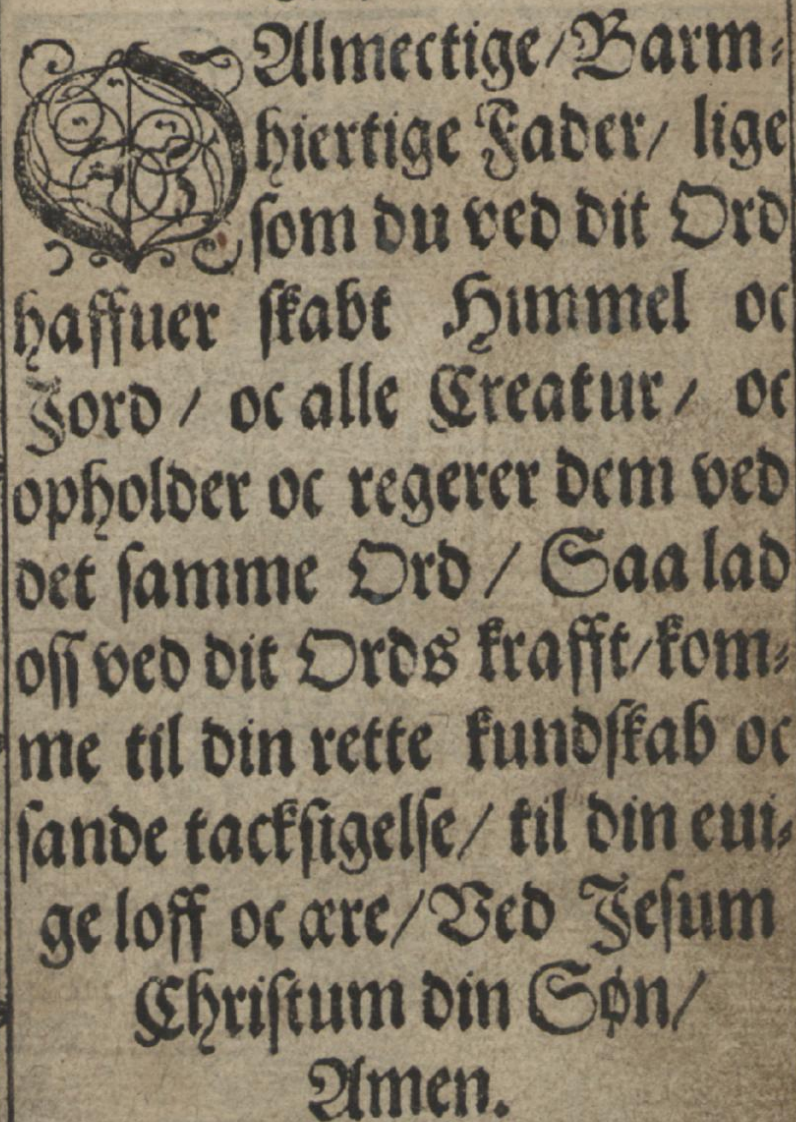 O Almectige/Barm⸗
hiertige Fader/ lige
som du ved dit Ord
haffuer skabt Himmel oc
Jord/ oc alle Creatur/ oc
opholder oc regerer dem ved
det samme Ord/ Saa lad
oss ved dit Ords krafft/kom⸗
me til din rette kundskab oc
sande tacksigelse/ til din eui⸗
ge loff oc ære/Ved Jesum
Christum din Søn/
Amen.